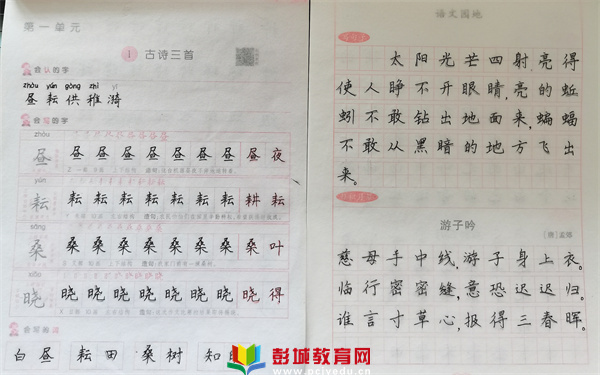 第一单元
1 古诗三首
会认的字
zhòu yún gòng zhì yī
昼 耘 供 稚 漪
会写的字
zhòu
昼 昼 昼 昼 昼 昼 昼 昼 昼 夜
yún
耘 耘 耘 耘 耘 耘 耘 耘 耕 耘
sāng
桑 桑 桑 桑 桑 桑 桑 桑 桑 叶
xiǎo
晓 晓 晓 晓 晓 晓 晓 晓 晓 得
会写词语
白昼 耘田 桑树 知
语文园地
太阳光芒四射,亮得
使人睁不开眼睛,亮的蚯
蚓不敢钻出地面来,蝙蝠
不敢从黑暗的地方飞出
来。
游子吟
[唐]孟郊
慈母手中线,游子身上衣。
临行密密缝,意恐迟迟归。
谁言寸草心,报得三春晖。
彭城教育网
www.ocivedu.cn